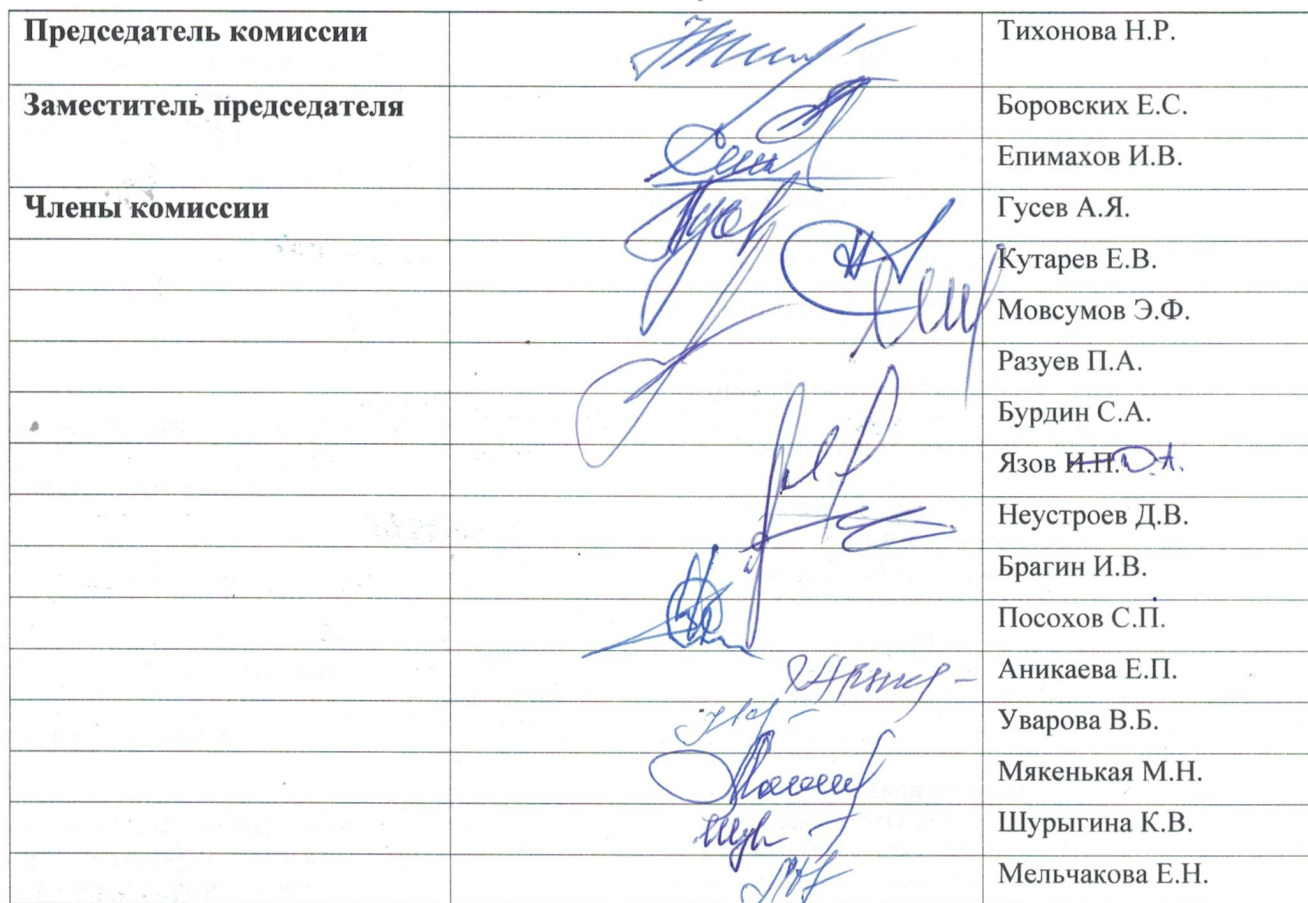 Председатель комиссии Тихонова Н.Р.
Заместитель председателя Боровских Е.С.
Епимахов И.В.
Члены комиссии Гусев А.Я.
Кутарев Е.В.
Мовсумов Э.Ф.
Разуев П.А.
Бурдин С.А.
Язов И.П. Д.А.
Неустроев Д.В.
Брагин И.В.
Посохов С.П.
Аникаева Е.П.
Уварова В.Б.
Мякенькая М.Н.
Шурыгина К.В.
Мельчакова Е.Н.